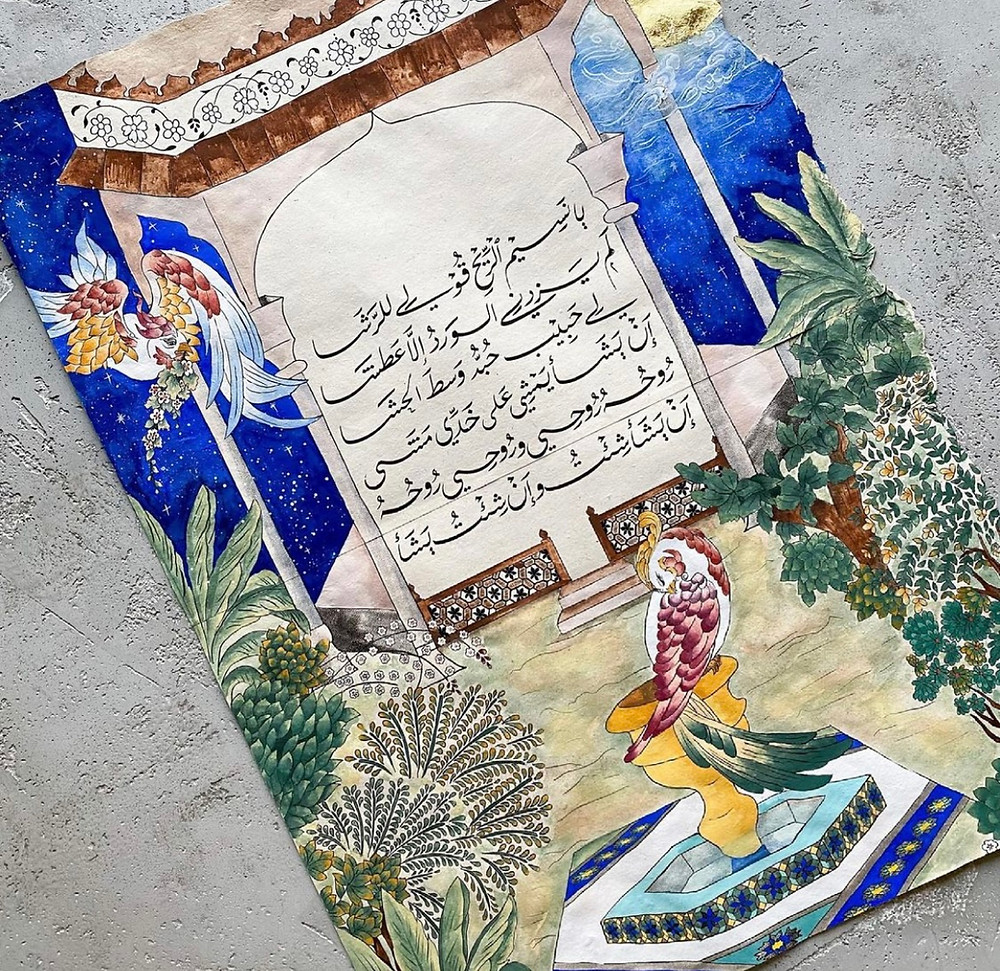 يا نَسِيمَ ٱلرِّيحِ قُولِي للرَّشَا
لَم يَزِدنِي الوِردُ إلَّا عَطشَا
لِي حَبِيبٌ حُبُّهُ وَسطَ الحَشَا
إن يَشَا يَمشِي عَلى خَدِّي مَشَى
رُوحُهُ رُوحِي ورُوحِي رُوحُهُ
إن يَشَأ شِئتُ وإن شِئتُ يَشَأ